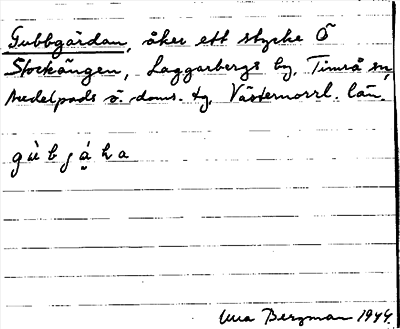 Gubbgärdan, åker ett stycke Ö
Stockängen, Laggarbergs by, Timrå sn,
Medelpads ö. doms. tg, Västernorrl. län.
g ù b g á h a
Bergman 1944.